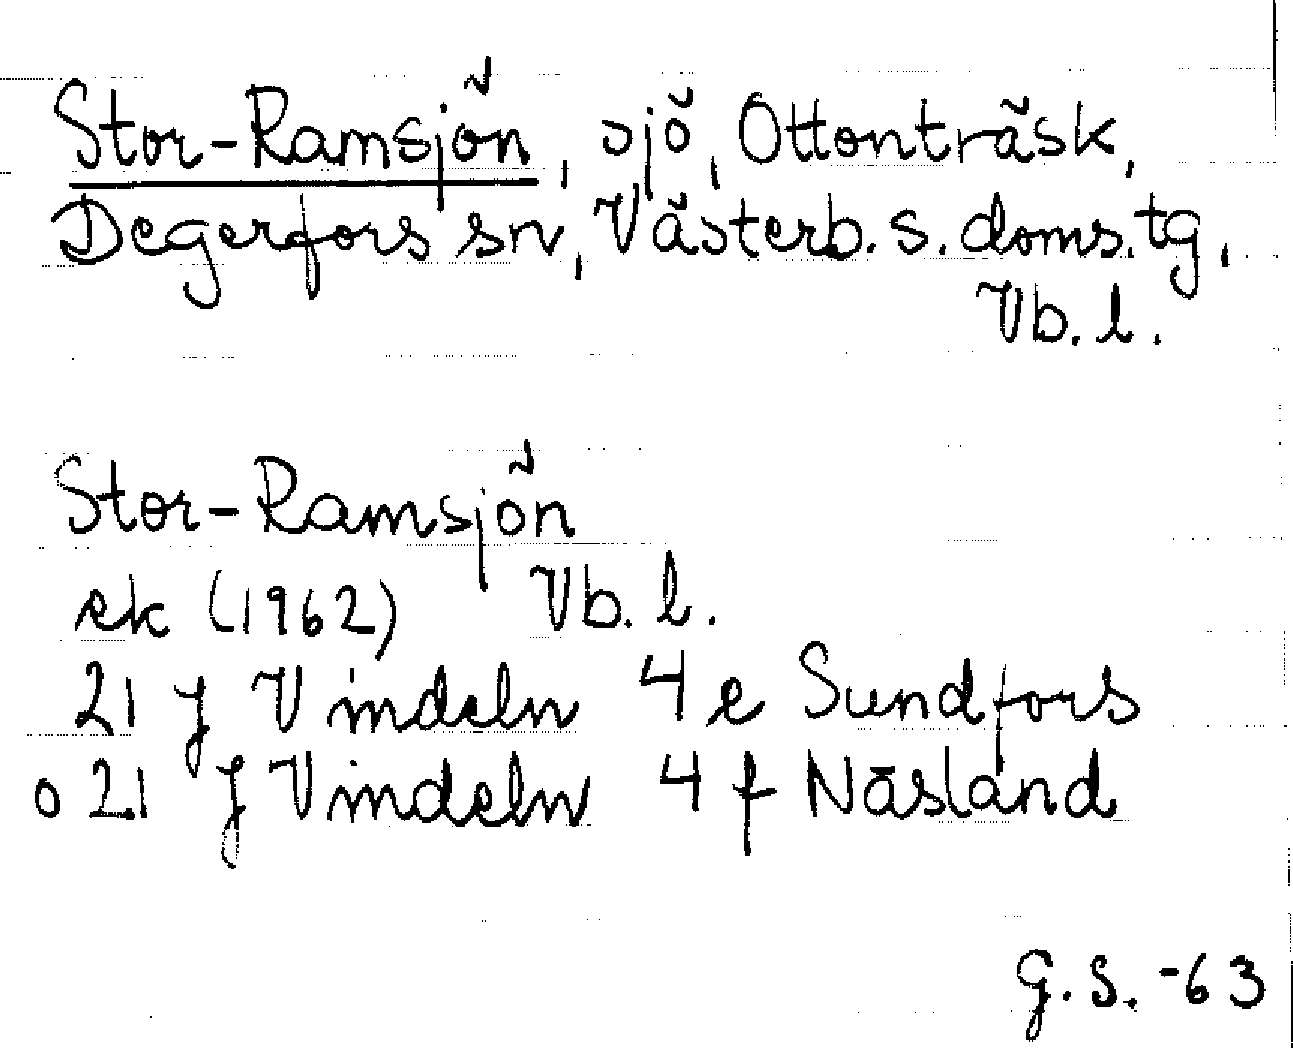 Stor-Ramsjön, sjö, Ottonträsk,
Degerfors sn, Västerb. s. doms. tg,
Vb. l.
Stor-Ramsjön
ek (1962) Vb. l.
21 J Vindeln 4 e Sundfors
o 21 J Vindeln 4 f Näsland
G. S. -63